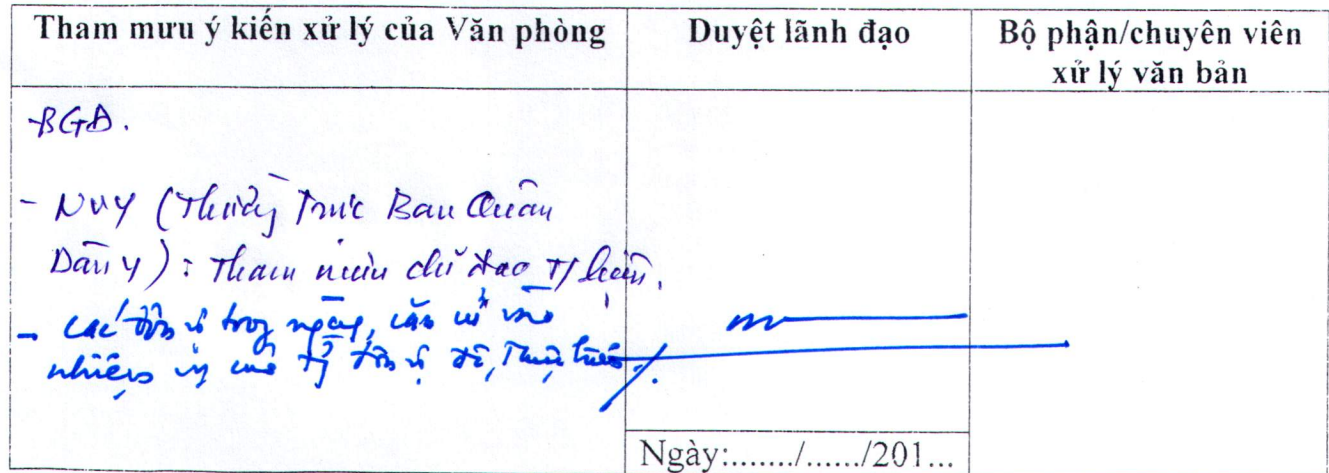 Tham mưu ý kiến xử lý của Văn phòng
Duyệt lãnh đạo
Bộ phận/chuyên viên
xử lý văn bản
-BGĐ.
- NVY (Thường Trực Ban Quân
Dân Y): Tham mưu chỉ đạo T/hiện.
- các đơn vị trong ngành, căn cứ vào
nhiệm vụ của đơn vị để, Thực hiện./.
Ngày:......./....../201...